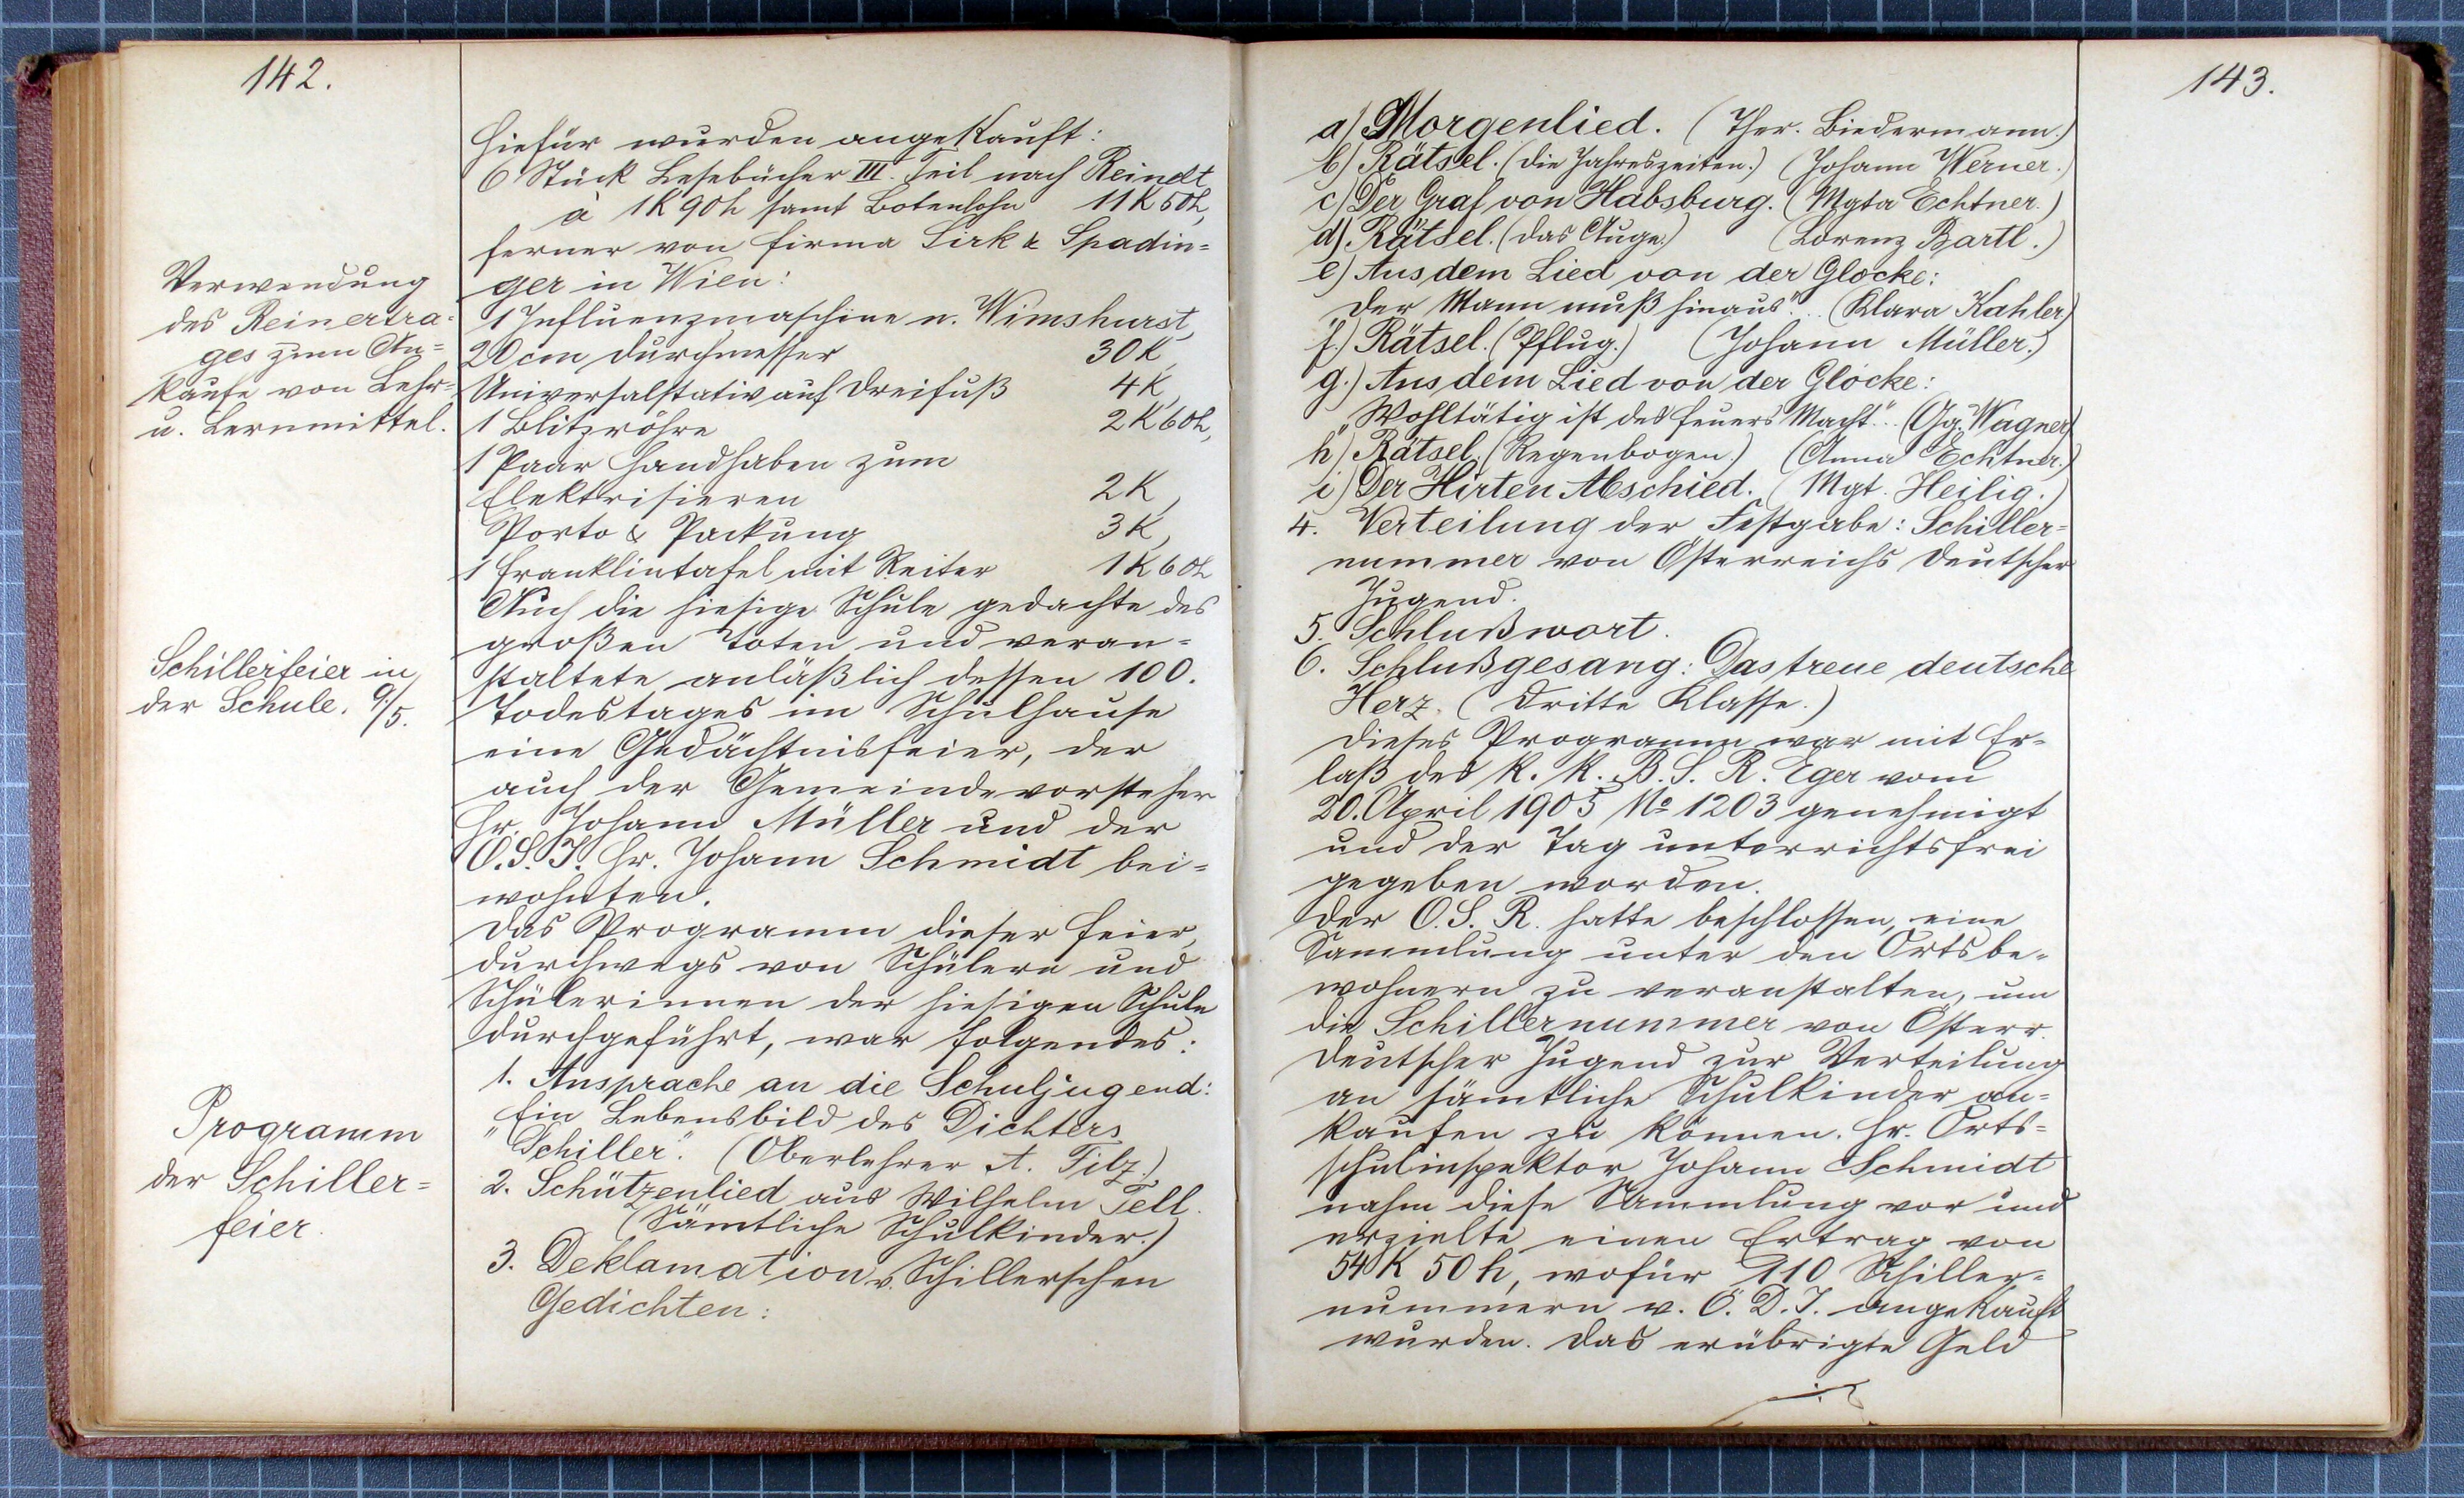 142.
Hiefür wurden angekauft:
6 Stück Lesebücher III. Teil nach Reindt
à 1K 90h samt Botenlohn 11K 50h,
ferner von Firma Lirk & Spadin=
ger in Wien:
Verwendung
des Reinertra=
ges zum An=
kaufe von Lehr=
u. Lernmittel.
1 Influenzmaschine n. Wimshurst,
20cm Durchmesser 30K,
Universalstativ auf Dreifuß 4K,
1 Blitzröhre 2K 60h,
1 Paar Handhaben zum
Elektrisieren 2K,
Porto & Packung 3K,
1 Franklintafel mit Reiter 1K 60h
Schillerfeier in
der Schule. 9./5.
Auch die hiesige Schule gedachte des
großen Toten und veran=
staltete anläßlich dessen 100.
Todestages im Schulhause
eine Gedächtnisfeier, der
auch der Gemeindevorsteher
Hr. Johann Müller und der
O.S.I. Hr. Johann Schmidt bei=
wohnten.
Das Programm dieser Feier,
durchwegs von Schülern und
Schülerinnen der hiesigen Schule
durchgeführt, war folgendes:
Programm
der Schiller=
feier.
1. Ansprache an die Schuljugend:
Ein Lebensbild des Dichters
"Schiller". (Oberlehrer A. Filz.)
2. Schützenlied aus Wilhelm Tell.
(Sämtliche Schulkinder.)
3. Deklamation v. Schillerschen
Gedichten:
143.
a) Morgenlied. (Ther. Biedermann.)
b) Rätsel. (Die Jahreszeiten.) (Johann Werner.)
c) Der Graf von Habsburg. (Mgta Echtner.)
d) Rätsel. (Das Auge.) (Lorenz Bartl.)
e) Aus dem Lied von der Glocke:
"Der Mann muß hinaus"... (Klara Kahler)
f.) Rätsel. (Pflug.) (Johann Müller.)
g.) Aus dem Lied von der Glocke:
"Wohltätig ist des Feuers Macht"... (Gg. Wagner)
h) Rätsel. (Regenbogen.) (Anna Echtner.)
i) Der Hirten Abschied. (Mgt. Heilig.)
4. Verteilung der Festgabe: Schiller=
nummer von Österreichs deutscher
Jugend.
5. Schlußwort.
6. Schlußgesang: Das treue deutsche
Herz. (Dritte Klasse.)
Dieses Programm war mit Er=
laß des k. k. B. S. R. Eger vom
20. April 1905 No 1203 genehmigt
und der Tag unterrichtsfrei
gegeben worden.
Der O. S. R. hatte beschlossen, eine
Sammlung unter den Ortsbe=
wohnern zu veranstalten, um
die Schillernummer von Österr.
deutscher Jugend zur Verteilung
an sämtliche Schulkinder an=
kaufen zu können. Hr. Orts=
schulinspektor Johann Schmidt
nahm diese Sammlung vor und
erzielte einen Ertrag von
54K 50h, wofür 110 Schiller=
nummern v. Ö. D. J. angekauft
wurden. Das erübrigte Geld